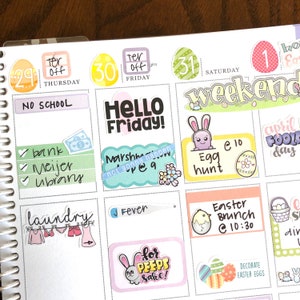 29
THURSDAY
Ter
off
30
FRIDAY
Ter
off
31
SATURDAY
1
weekend
NO SCHOOL
bank
Meijer
library
laundry
HELLO
Friday!
Marshmallow
@ 9
Fever
for
PEEPS
sake!
@ 10
Egg
hunt
Easter
Brunch
@ 10:30
DECORATE
EASTER EGGS
April
FOOLS
day